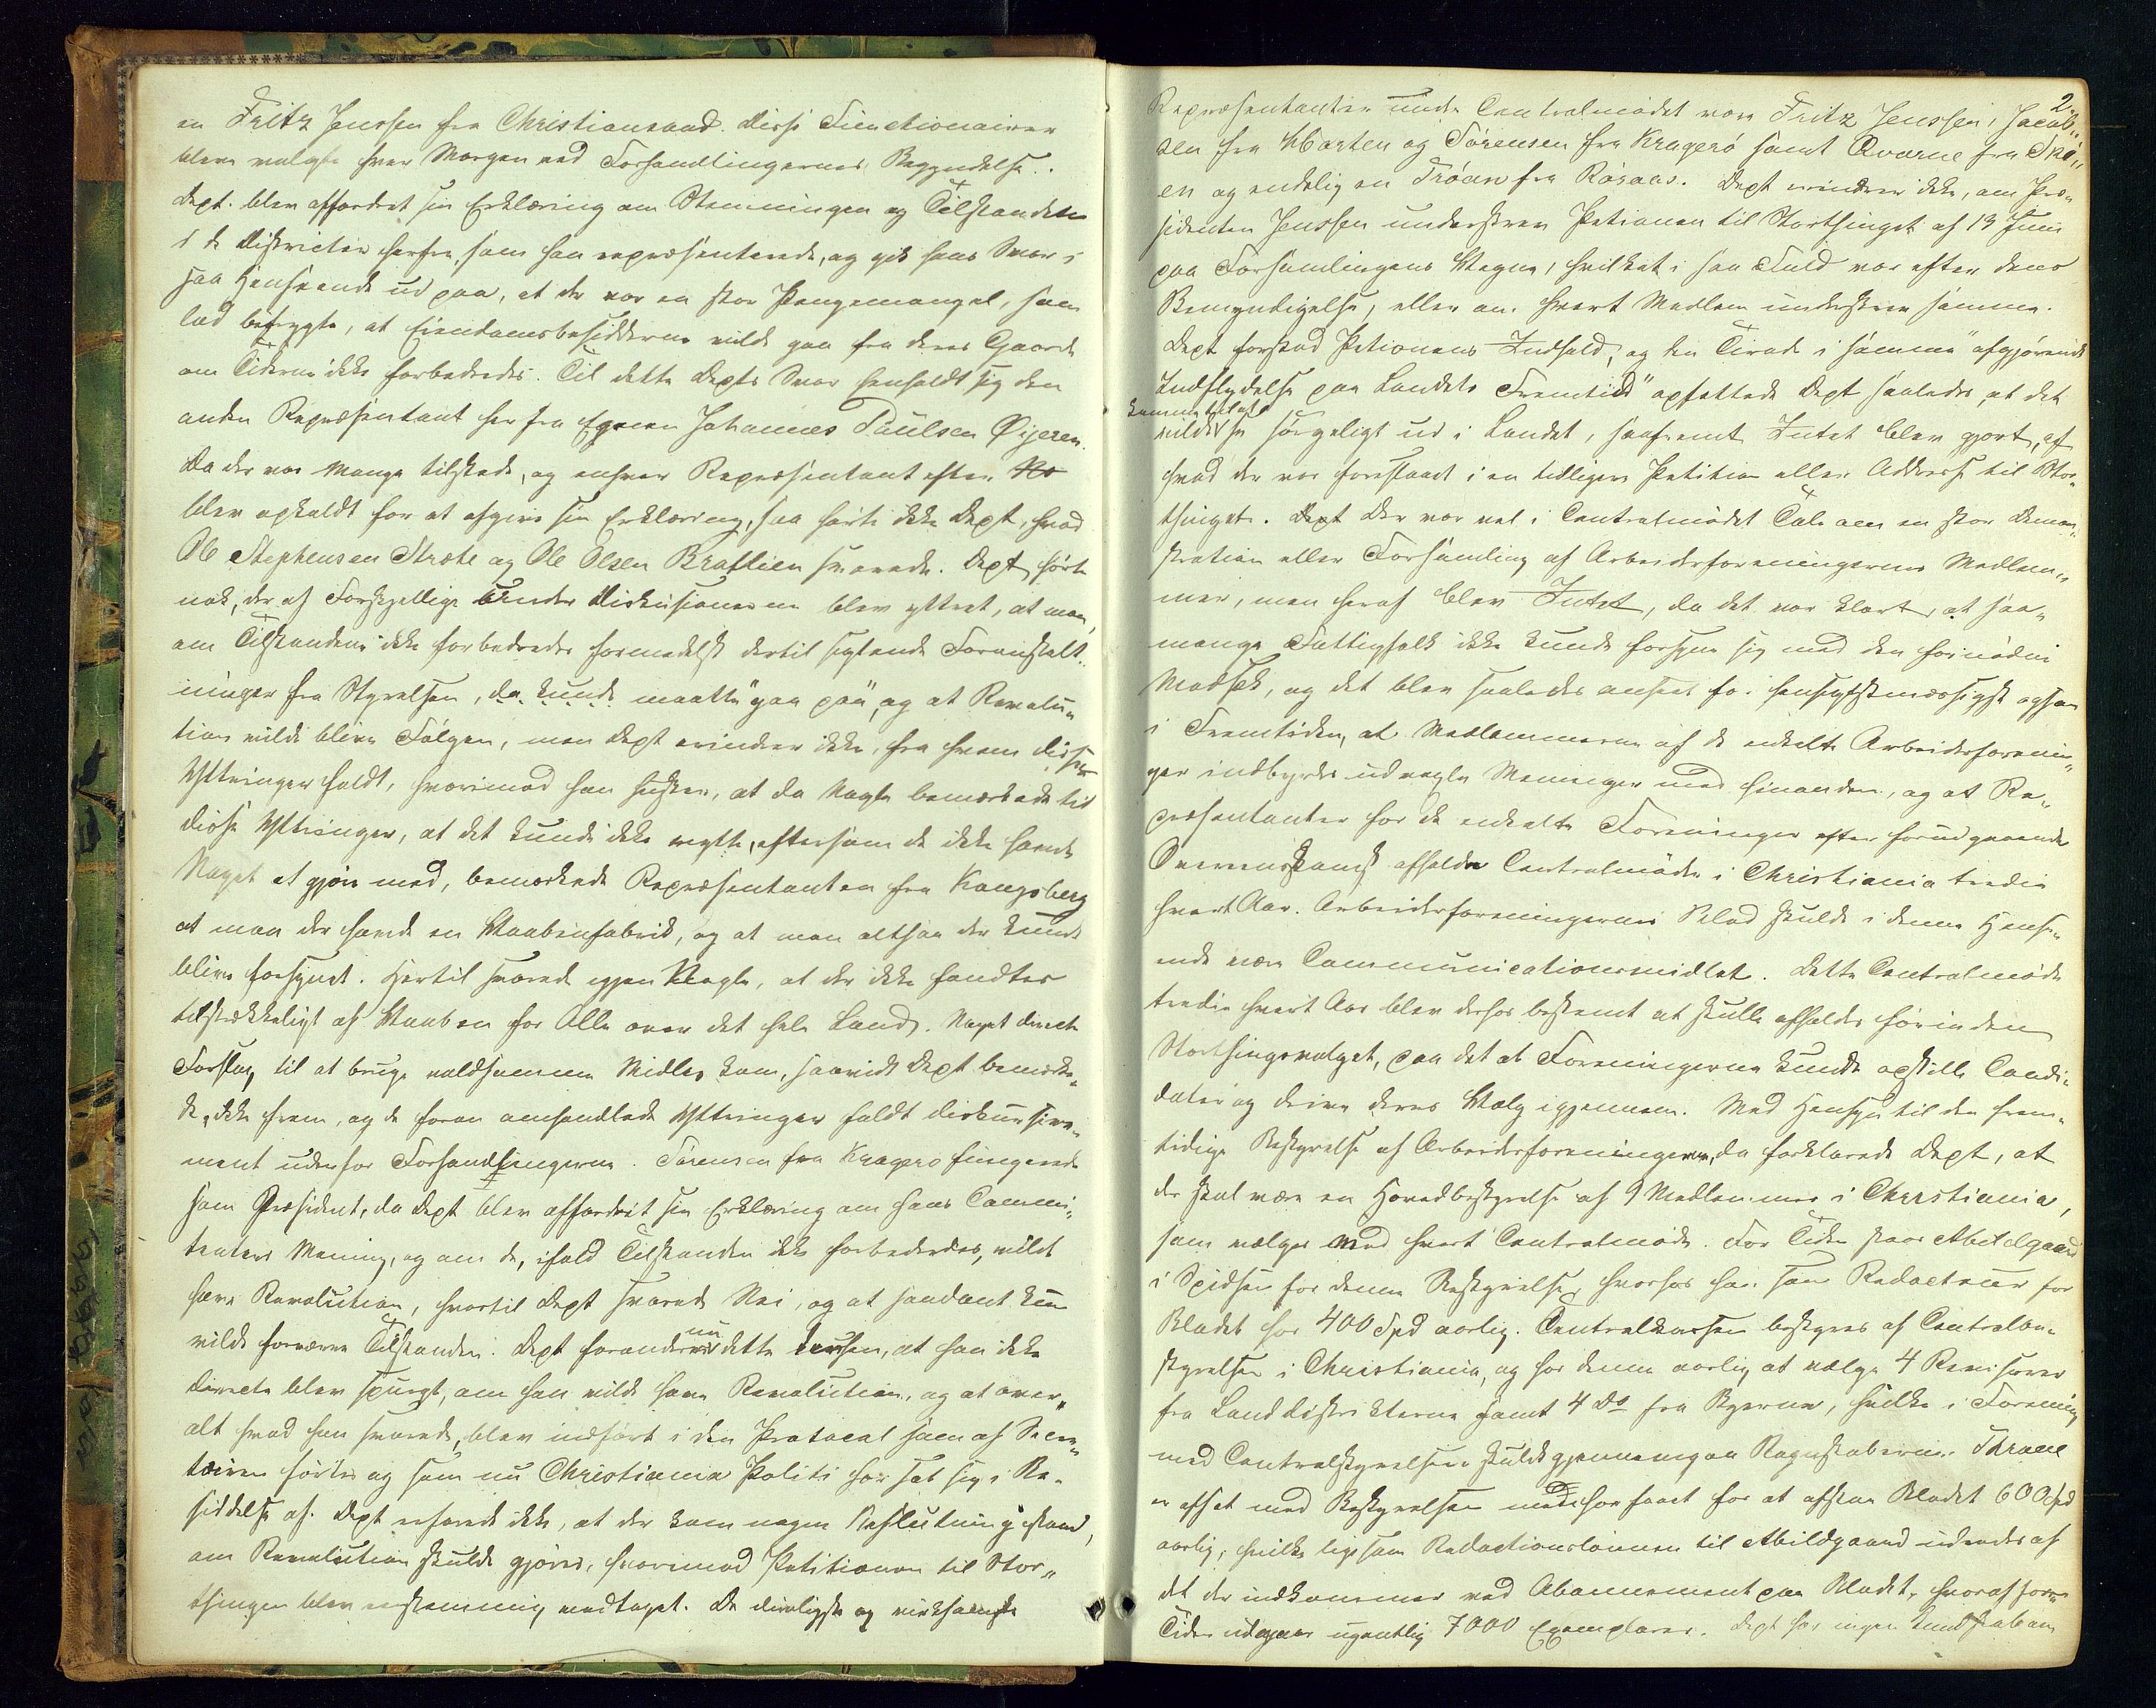 en Fritz Jenssen fra Christiansand. Disse Functionairer
bleve valgte hver Morgen ved Forhandlingernes Begyndelse.
Dept. blev affordret sin Erklæring om Stemningen og Tilstanden
i de Districter herfra, som han repræsenterede, og gik hans Svar i
saa Henseende ud paa, at der var en stor Pengemangel, som
lod befrygte, at Eiendomsbesidderne vilde gaa fra deres Gaarde
om Tiderne ikke forbedredes. Til dette Depts Svar henholdt sig den
anden Repræsentant her fra Egnen Johannes Paulsen Øijeren.
Da der var mange tilstede, og enhver Repræsentant efter No
blev opkaldt for at afgive sin Erklæring, saa hørte ikke Dept, hvad
Ole Stephensen Strøte og Ole Olsen Braflien svarede. Dept hørte
nok, der af Forskjellige under Diskusionerne blev yttret, at man,
om Tilstandene ikke forbedredes formedelst dertil sigtende Foranstalt-
ninger fra Styrelsen, da kunde maatte "gaa paa", og at Revolu-
tion vilde blive Følgen, men Dept erindrer ikke, fra hvem disse
Yttringer faldt, hvorimod han husker, at da Nogle bemærkede til
disse Yttringer, at det kunde ikke nytte, eftersom de ikke havde
Noget at gjøre med, bemærkede Repræsentanten fra Kongsberg
at man der havde en Vaabenfabrik, og at man altsaa der kunde
blive forsynet. Hertil svarede igjen Nogle, at der ikke fandtes
tilstrækkeligt af Vaaben for Alle over det hele Land. Noget directe
Forslag til at bruge voldsomme Midler kom, saavidt Dept bemærke-
de, ikke frem, og de foran omhandlede Yttringer faldt diskursive-
ment udenfor Forhandlingerne. Sørensen fra Kragerø fungerede
som Præsident, da Dept blev affordret sin Erklæring om hans Commi-
tenters Mening, og om de, ifald Tilstanden ikke forbedredes, vilde
have Revolution, hvortil Dept svarede Nei, og at saadant kun
vilde forværre Tilstanden. Dept forandrer nu dette derhen, at han ikke
directe blev spurgt, om han vilde have Revolution, og at over-
alt hvad han svarede, blev indført i den Protocol som af Secre-
tæren førtes og som nu Christiania Politi har sat sig i Be-
siddelse af. Dept erfarede ikke, at der kom nogen Beslutning istand,
om Revolution skulde gjøres, hvorimod Petitionen til Stor-
thinget blev enstemmig vedtaget. De dueligste og virksomste
2.
Repræsentanter under Centralmødet vare Fritz Jenssen, Jacob-
sen fra Horten og Sørensen fra Kragerø samt Qvarne fra Ski-
en og endelig en Trøan fra Røraas. Dept erindrer ikke, om Præ-
sidenten Jenssen underskrev Petionen til Storthinget af 13 Juni
paa Forsamlingens Vegne, hvilket i saa Fald var efter dens
Bemyndigelse, eller om hvert Medlem underskrev samme.
Dept forstod Petionens Indhold, og den Tirade i samme "afgjørende
Indflydelse paa Landets Fremtid" opfattede Dept saaledes, at det
komme til at
vilde se sørgeligt ud i Landet, saafremt Intet blev gjort, af
hvad der var foreslaaet i en tidligere Petition eller Addresse til Stor-
thinget. Dept Der var vel i Centralmødet Tale om en stor Demon-
stration eller Forsamling af Arbeiderforeningernes Medlem-
mer, men heraf blev Intet, da det var klart, at saa-
mange Fattigfolk ikke kunde forsyne sig med den fornødne
Madsek, og det blev saaledes anseet for hensigtsmæssigst ogsaa
i Fremtiden, at Medlemmerne af de enkelte Arbeiderforenin-
ger indbyrdes udvexle Meninger med hinanden, og at Re-
præsentanter for de enkelte Foreninger efter forudgaaende
Overenskomst afholder Centralmøde i Christiania tredie
hvert Aar. Arbeiderforeningernes Blad skulde i denne Hense-
ende være Communicationsmidlet. Dette Centralmøde
tredie hvert Aar blev derfor bestemt at skulle afholdes førinden
Storthingsvalget, paa det at Foreningerne kunde opstille Candi-
dater og drive deres Valg igjennem. Med Hensyn til den frem-
tidige Bestyrelse af Arbeiderforeningerne, da forklarede Dept, at
der skal være en Hovedbestyrelse af 9 Medlemmer i Christiania,
som vælges ved hvert Centralmøde. For Tiden staar Abildgaard
i Spidsen for denne Bestyrelse, hvorfor han som Redacteur for
Bladet har 400 Spd aarlig. Centralkassen bestyres af Centralbe-
styrelsen i Christiania, og har denne aarlig at vælge 4 Revisorer
fra Landdistrikterne samt 4 Do fra Byerne, hvilke i Forening
med Centralstyrelsen skulde gjennemgaa Regnskaberne. Thrane
er afsat med Bestyrelsen men har faaet for at afstaa Bladet 600 Spd
aarlig, hvilke ligesom Redactionslønnen til Abildgaard udredes af
det der indkommer ved Abonnement paa Bladet, hvoraf for
Tiden udgaar ugentlig 7000 Exemplarer. Dept har ingen Kundskab om